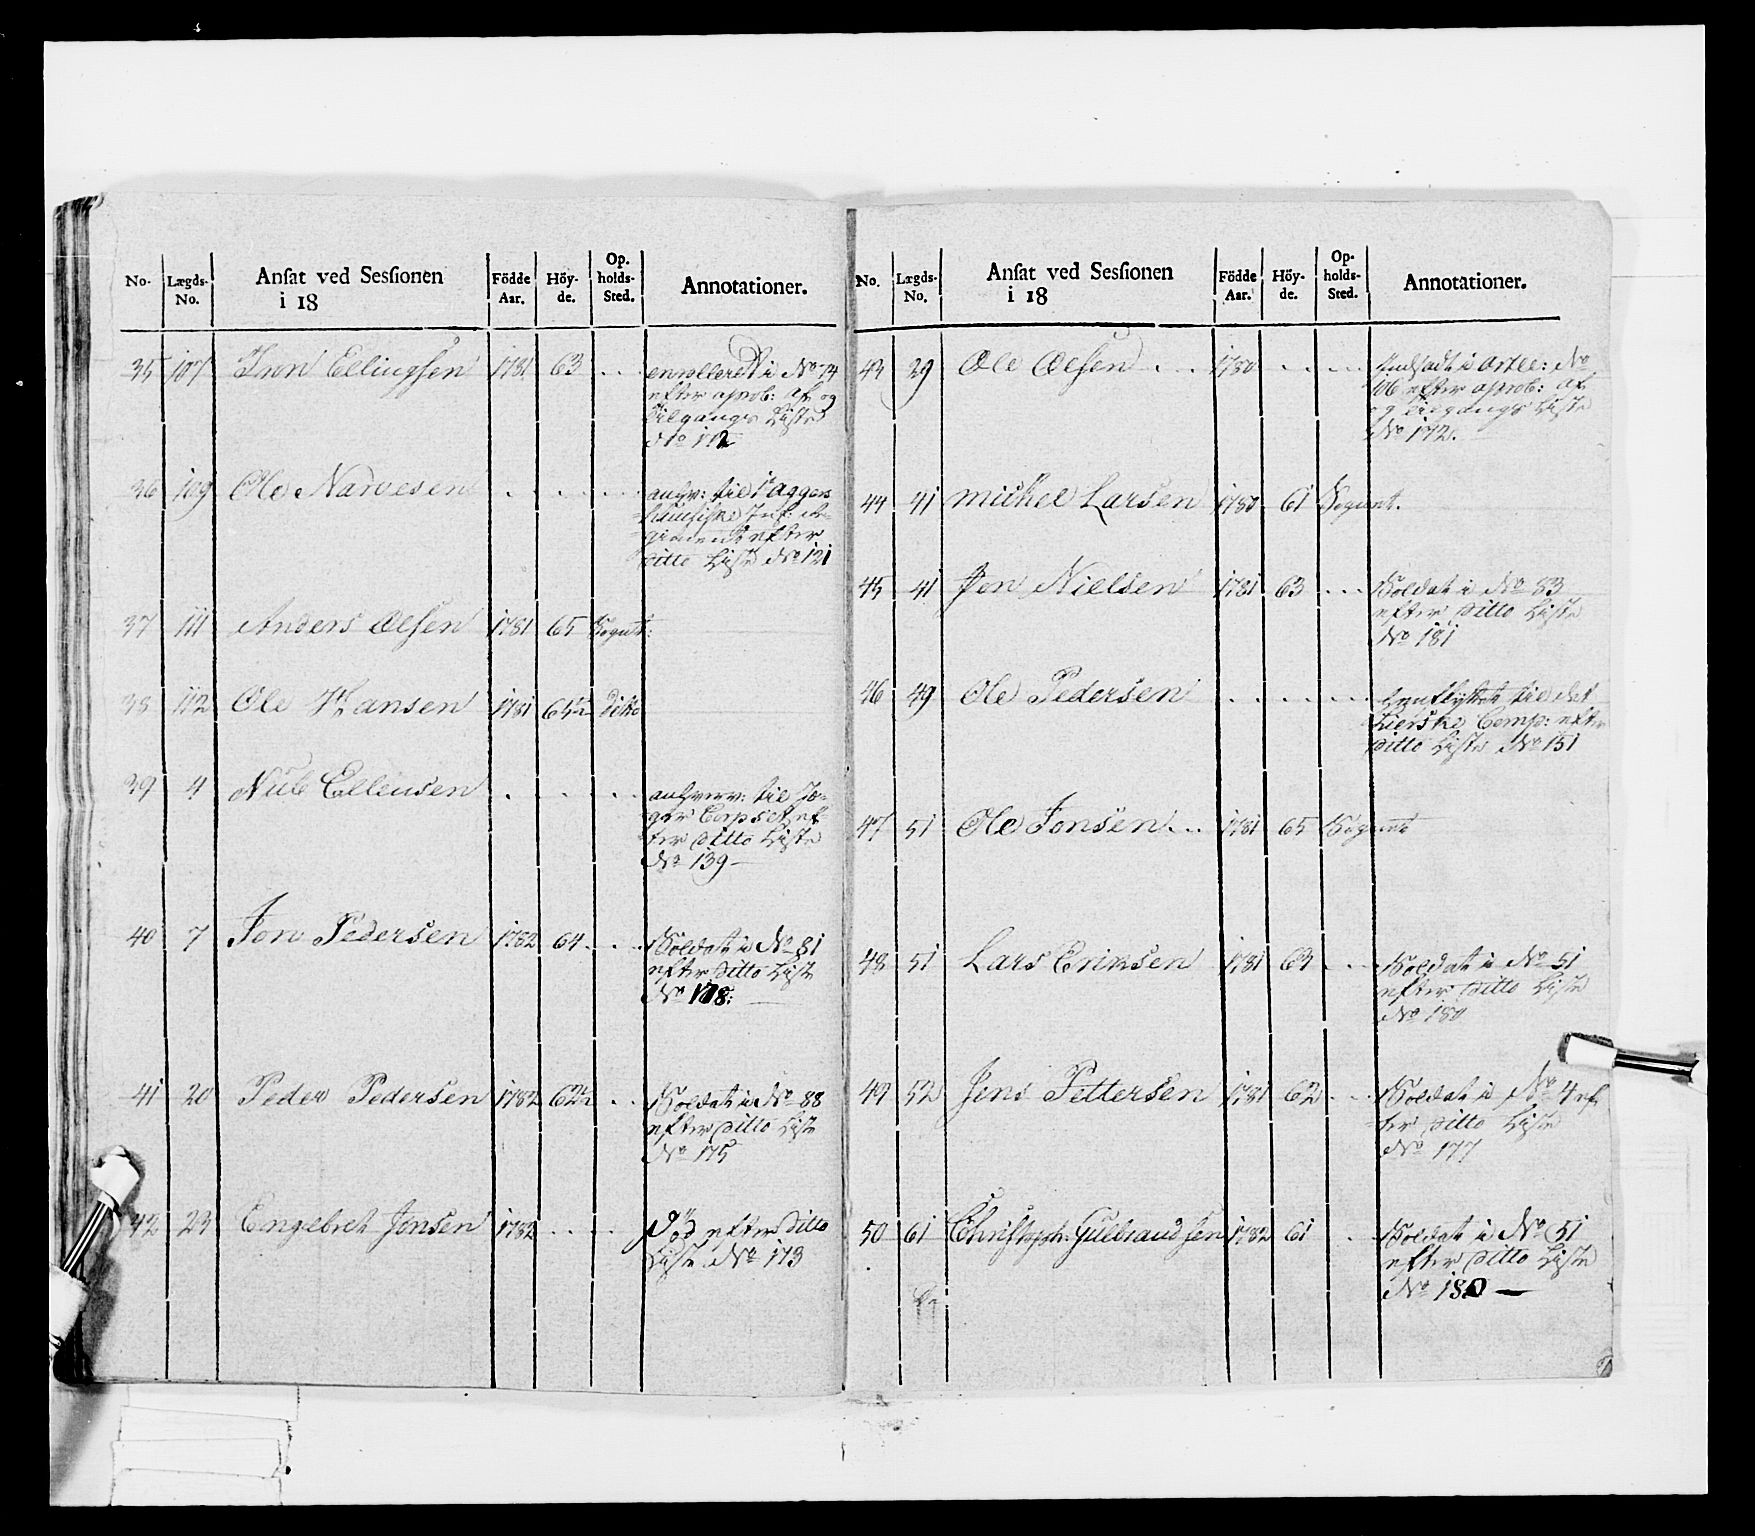 No. Lægds-No. Anſat ved Seſſionen i 18 Födde Aar. Höy-de. Op-holds-Sted. Annotationer.
35 107 Iver Ellingſen 1781 63 . . . enrolleret i No 74
efter aprob: Af og
Tilgangs Liste
No 112
36 109 Ole Narvesen . . . . . anhv: til 1 Aggers
huusiske Inf: Re-
giment efter
ditto Liste No 121
37 111 Anders Olſen 1781 65 Sognet:
38 112 Ole Hansen 1781 64½ ditto
39 4 Ellensen . . . . . anhverv: til Jæ-
ger Corpset ef
ter ditto Liste
No 139 —
40 7 Jon Pedersen 1782 64 . . . Soldat i No 81
efter ditto Liste
No 178: —
41 20 Peder Pedersen 1782 62½ . . Soldat i No 88
efter ditto Liste
No 175
42 23 Engebret Jonsen 1782 . . . . Död efter ditto
Liste No 173
No. Lægds-No. Anſat ved Seſſionen i 18 Födde Aar. Höy-de. Op-holds-Sted. Annotationer.
43 39 Ole Olſen . . . 1780 . . . . Indsadt i Artll: No
106 efter aprob: Af
og Tilgangs Liste
No 172.
44 41 Michel Larsen 1780 61 Sognet.
45 41 Jon Nielsen 1781 63 . . . Soldat i No 83
efter ditto Liste
No 181
46 49 Ole Pedersen . . . . . . henflyttet til det
Lierske Comp: efter
ditto Liste No 151
47 51 Ole Jonsen . . . 1781 65 Sognet
48 51 Lars Eriksen 1781 63 . . . Soldat i No 51
efter ditto Liste
No 180
49 52 Jens Pettersen 1781 62 . . . Soldat i No 4 ef
ter ditto Liste
No 177
50 61 Christoph: Gulbrandſen 1782 61 . Soldat i No 51
efter ditto Liste
No 180 —